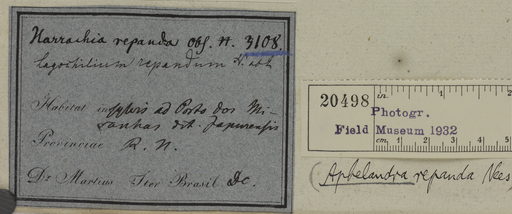 Harrachia repanda obs. N. 3108
Lagochilium repandum N. ab E.
Habitat in sylvis ad Porto dos Mi-
ranhas dist. Japurensis
Provinciae R. N.
Dr. Martius Iter Brasil &c.
20498
in. 1 2
Photogr.
Field Museum 1932
cm. 1 2 3 4 5
(Aphelandra repanda Nees